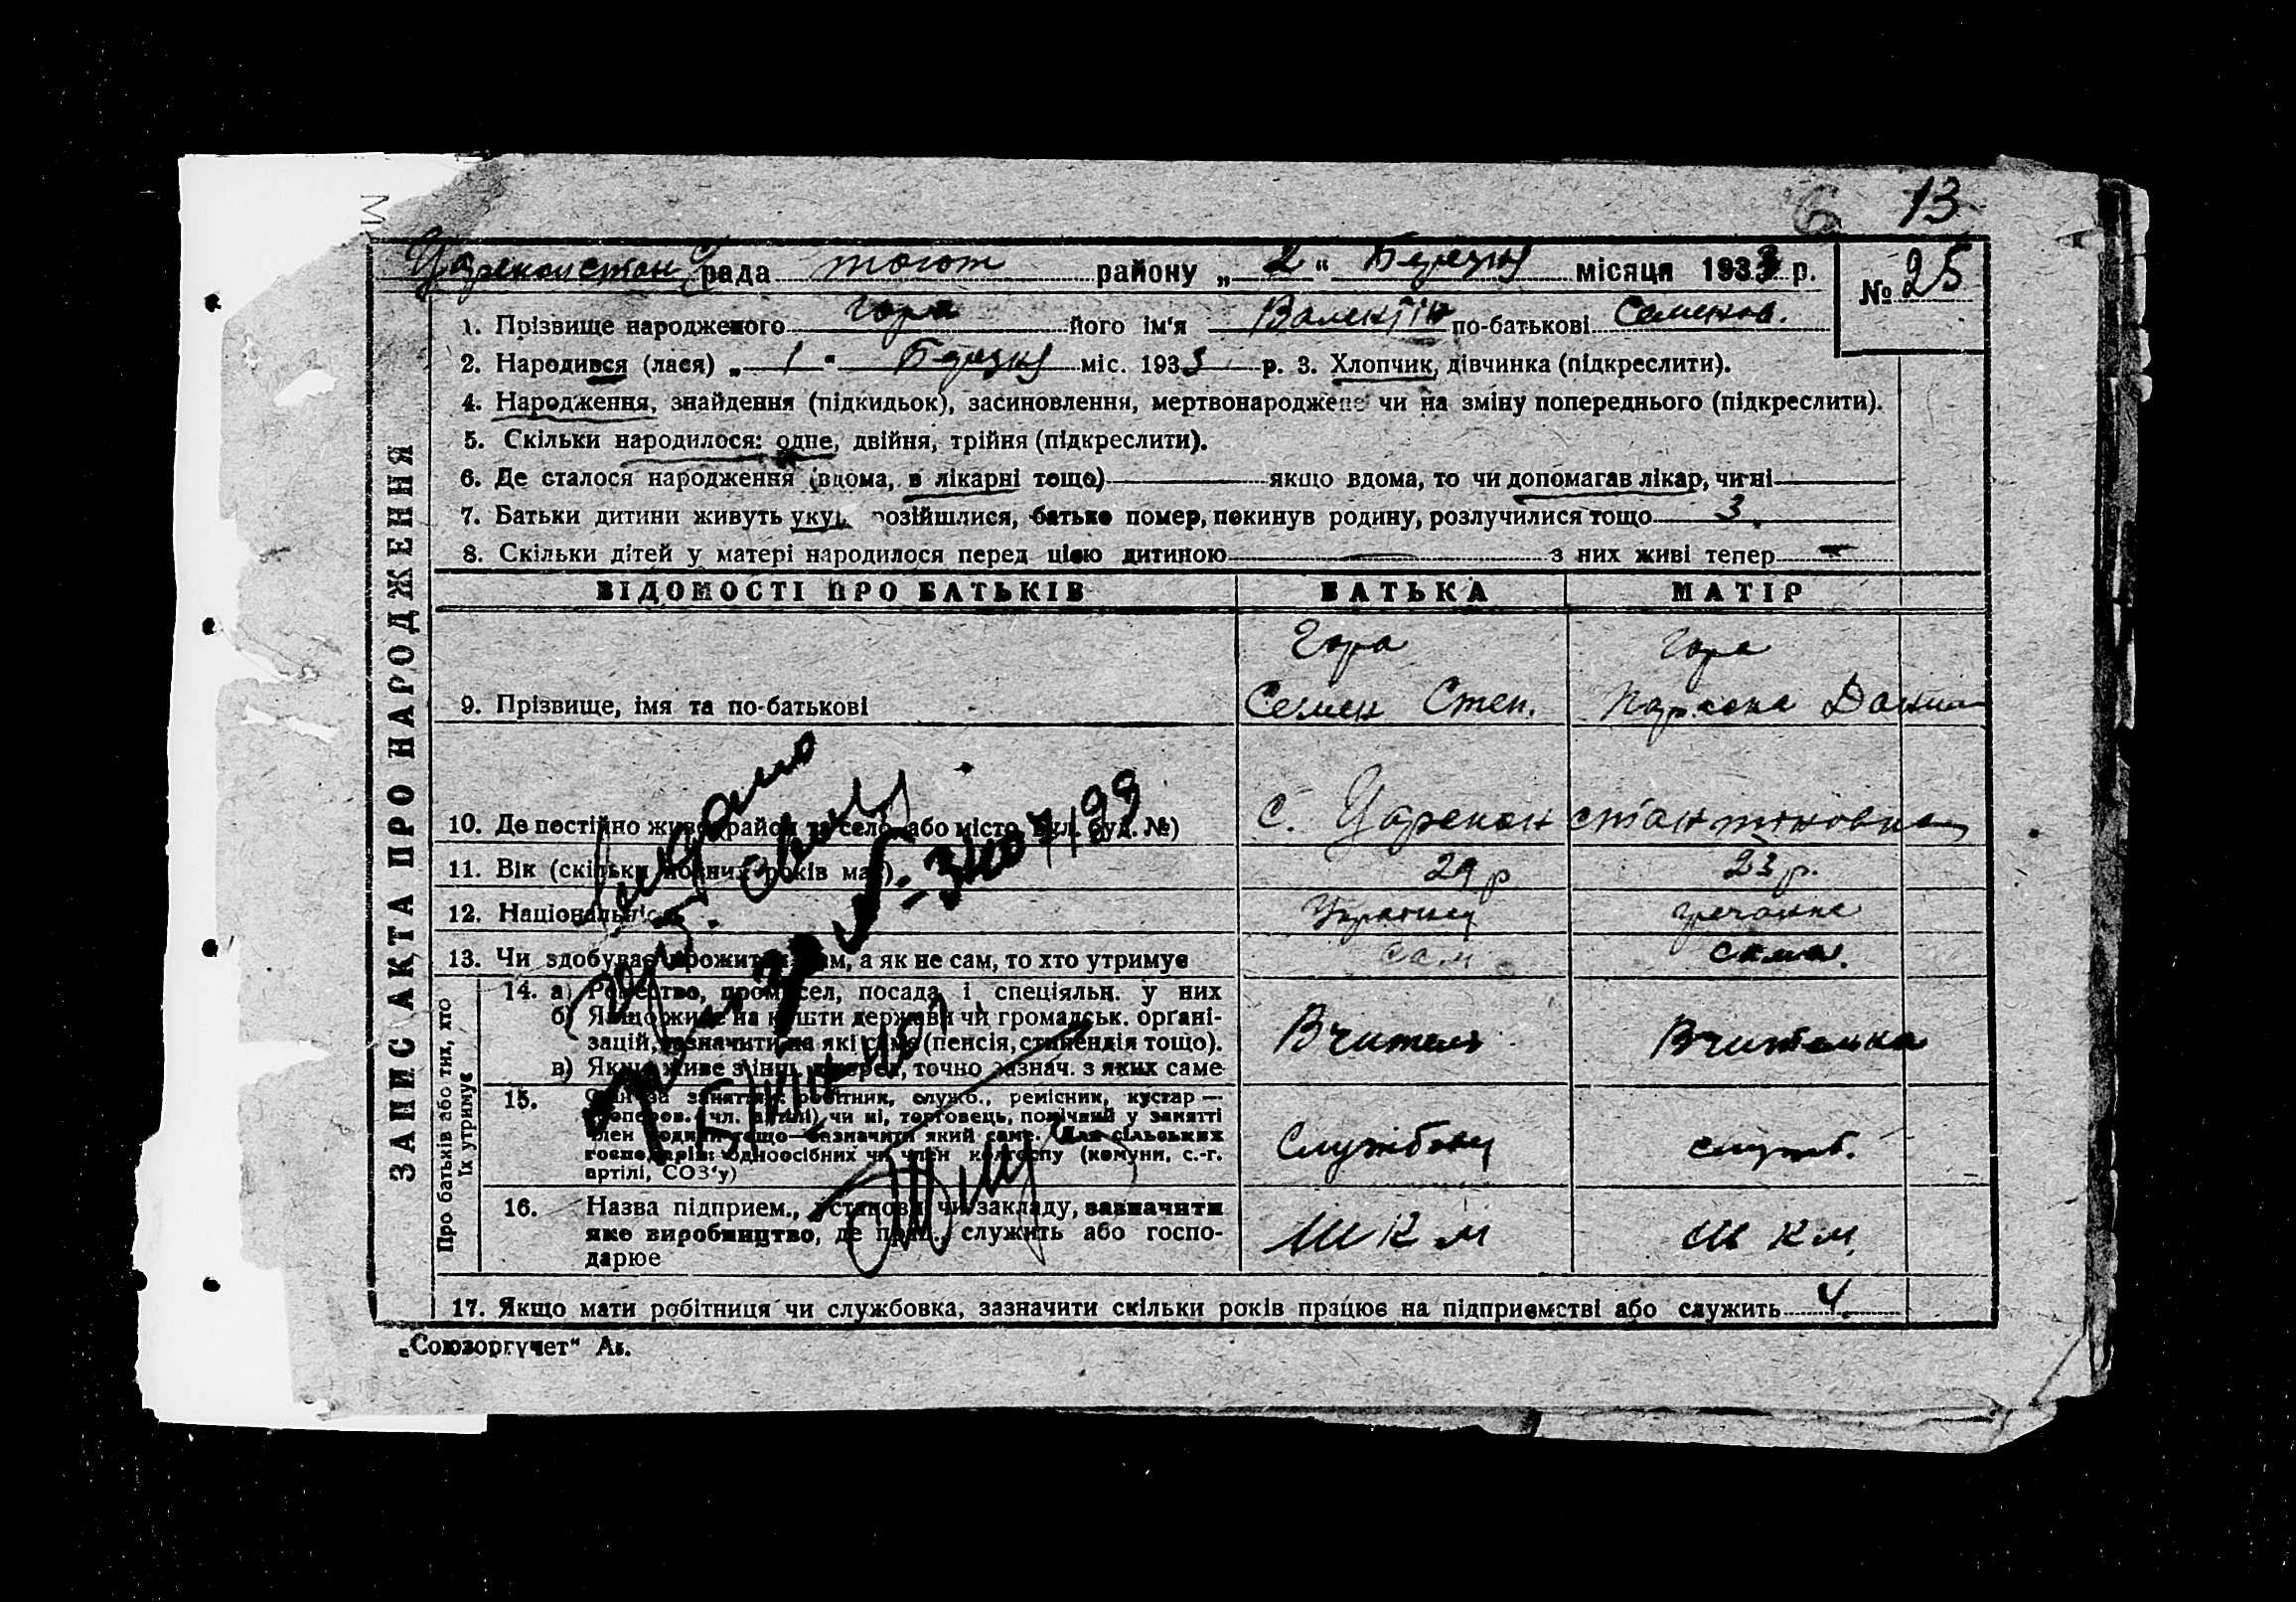 6 13
Цареконстан. рада тогот району „ 2 “ Березня місяця 1933 р.
№ 25
1. Прізвище народженого Гора його ім'я Валентін по-батькові Семенов.
2. Народився (лася) „ 1 " Березня міс. 1933 р. 3. Хлопчик, дівчинка (підкреслити).
4. Народження, знайдення (підкидьок), засиновлення, мертвонароджене чи на зміну попереднього (підкреслити).
5. Скільки народилося: одне, двійня, трійня (підкреслити).
6. Де сталося народження (вдома, в лікарні тощо) якщо вдома, то чи допомагав лікар, чи ні
7. Батьки дитини живуть укупі розійшлися, батько помер, покинув родину, розлучилися тощо 3.
8. Скільки дітей у матері народилося перед цією дитиною — з них живі тепер —
ЗАПИС АКТА ПРО НАРОДЖЕННЯ
ВІДОМОСТІ ПРО БАТЬКІВ БАТЬКА МАТІР
Гора Гора
9. Прізвище, імя та по-батькові Семен Степ. Параска Данил
10. Де постійно живе (район та село, або місто, вул. буд. №) с. Цареконстантиновка
11. Вік (скільки повних років має) 29 р 23 р.
12. Національність Українец гречанка
13. Чи здобуває прожиток сам, а як не сам, то хто утримує сам сама.
Про батьків або тих, хто
їх утримує
14. а) Ремество, промисел, посада і спеціяльн. у них
б) Якщо живе на кошти держави чи громадськ. орґані-
зацій, зазначити на які саме (пенсія, стипендія тощо).
в) Якщо живе з інш. джерел, точно зазнач. з яких саме
Вчитель Вчителька
15. Стан за заняттям: робітник, служб., ремісник, кустар —
кооперов. (чл. артілі) чи ні, торговець, помічний у занятті
член родини тощо—зазначити який саме. (Для сільських
господарів: одноосібних чи член колгоспу (комуни, с.-г.
артілі, СОЗ'у)
Службовец служб.
16. Назва підприєм., установи чи закладу, зазначити
яке виробництво, де прац., служить або госпо-
дарює
Ш К М Ш К М
17. Якщо мати робітниця чи службовка, зазначити скільки років працює на підприємстві або служить 4.
„Союзоргучет“ Ак.